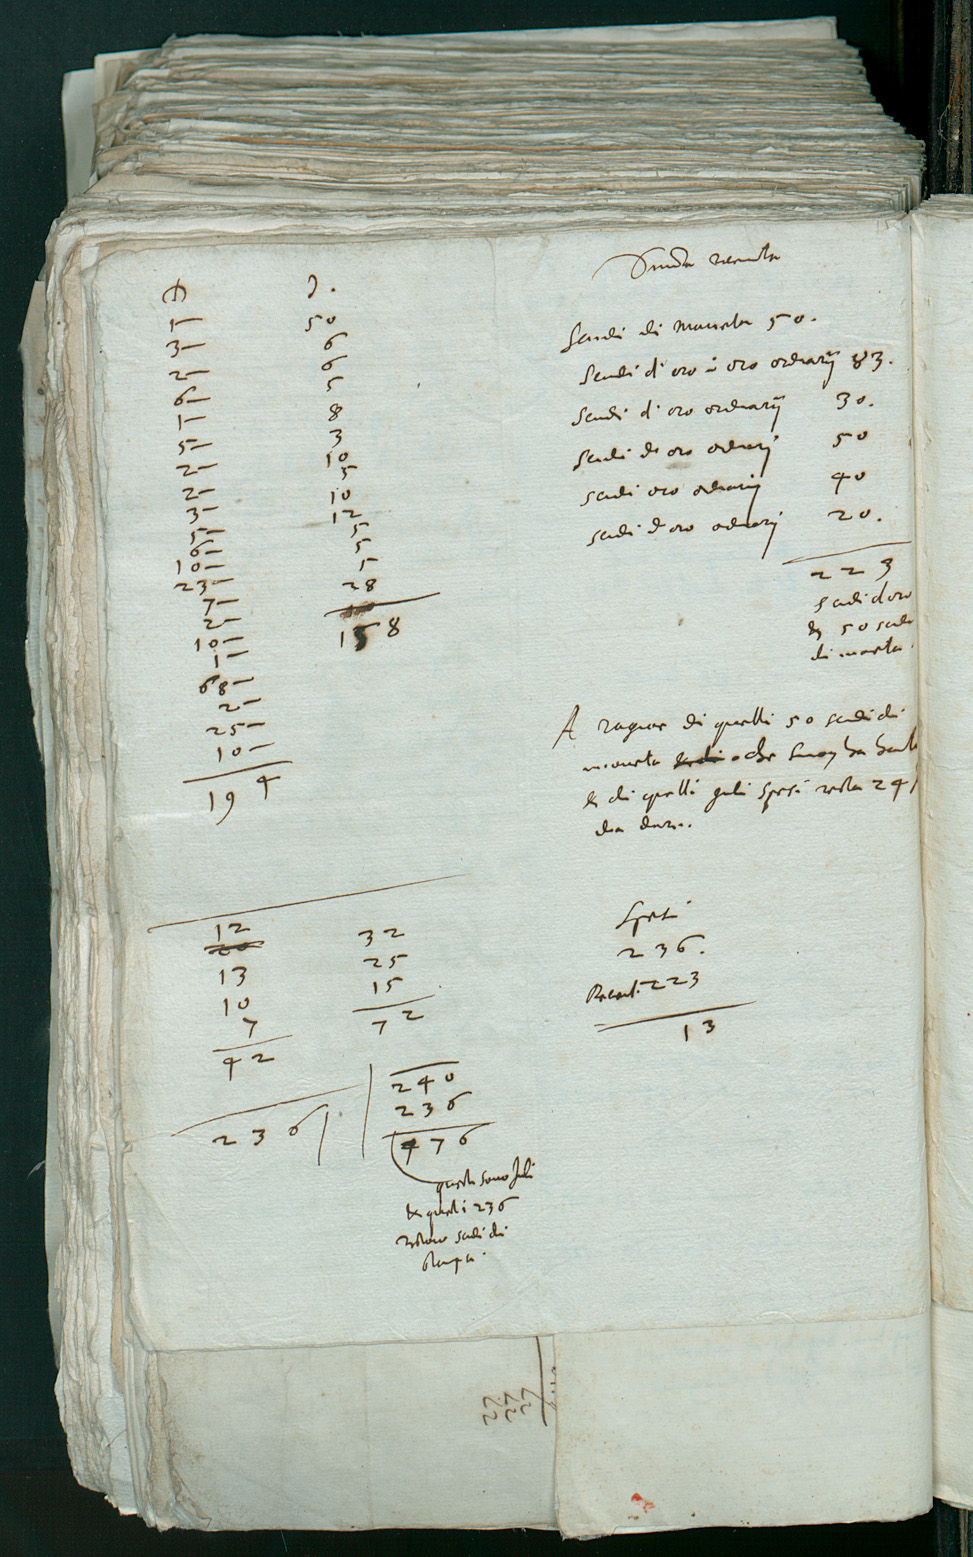 1–
3–
2–
6–
1–
5–
2–
2–
3–
5–
6–
10–
23–
7–
2–
10–
1–
68–
2–
25–
10–
194
J.
50
6
6
5
8
3
10
5
10
12
5
5
5
28
158
12
13
10
7
42
32
25
15
72
236
240
236
476
questi sono Juli
et questi 236
scudi di
stampa.
receuta
Scudi di moneta 50.
Scudi d'oro in oro ordinarij 83.
Scudi d'oro ordinarij 30.
Scudi de oro ordinarij 50
scudi oro ordinarij 40
scudi d oro ordinarij 20.
223
scudi d oro
et 50 scudi
di moneta.
A ragione di quelli 50 scudi di
moneta che ha
et di quelli Juli Spesi resta 241
da dare.
Spesi
236.
Receuti 223
13
22
22
22